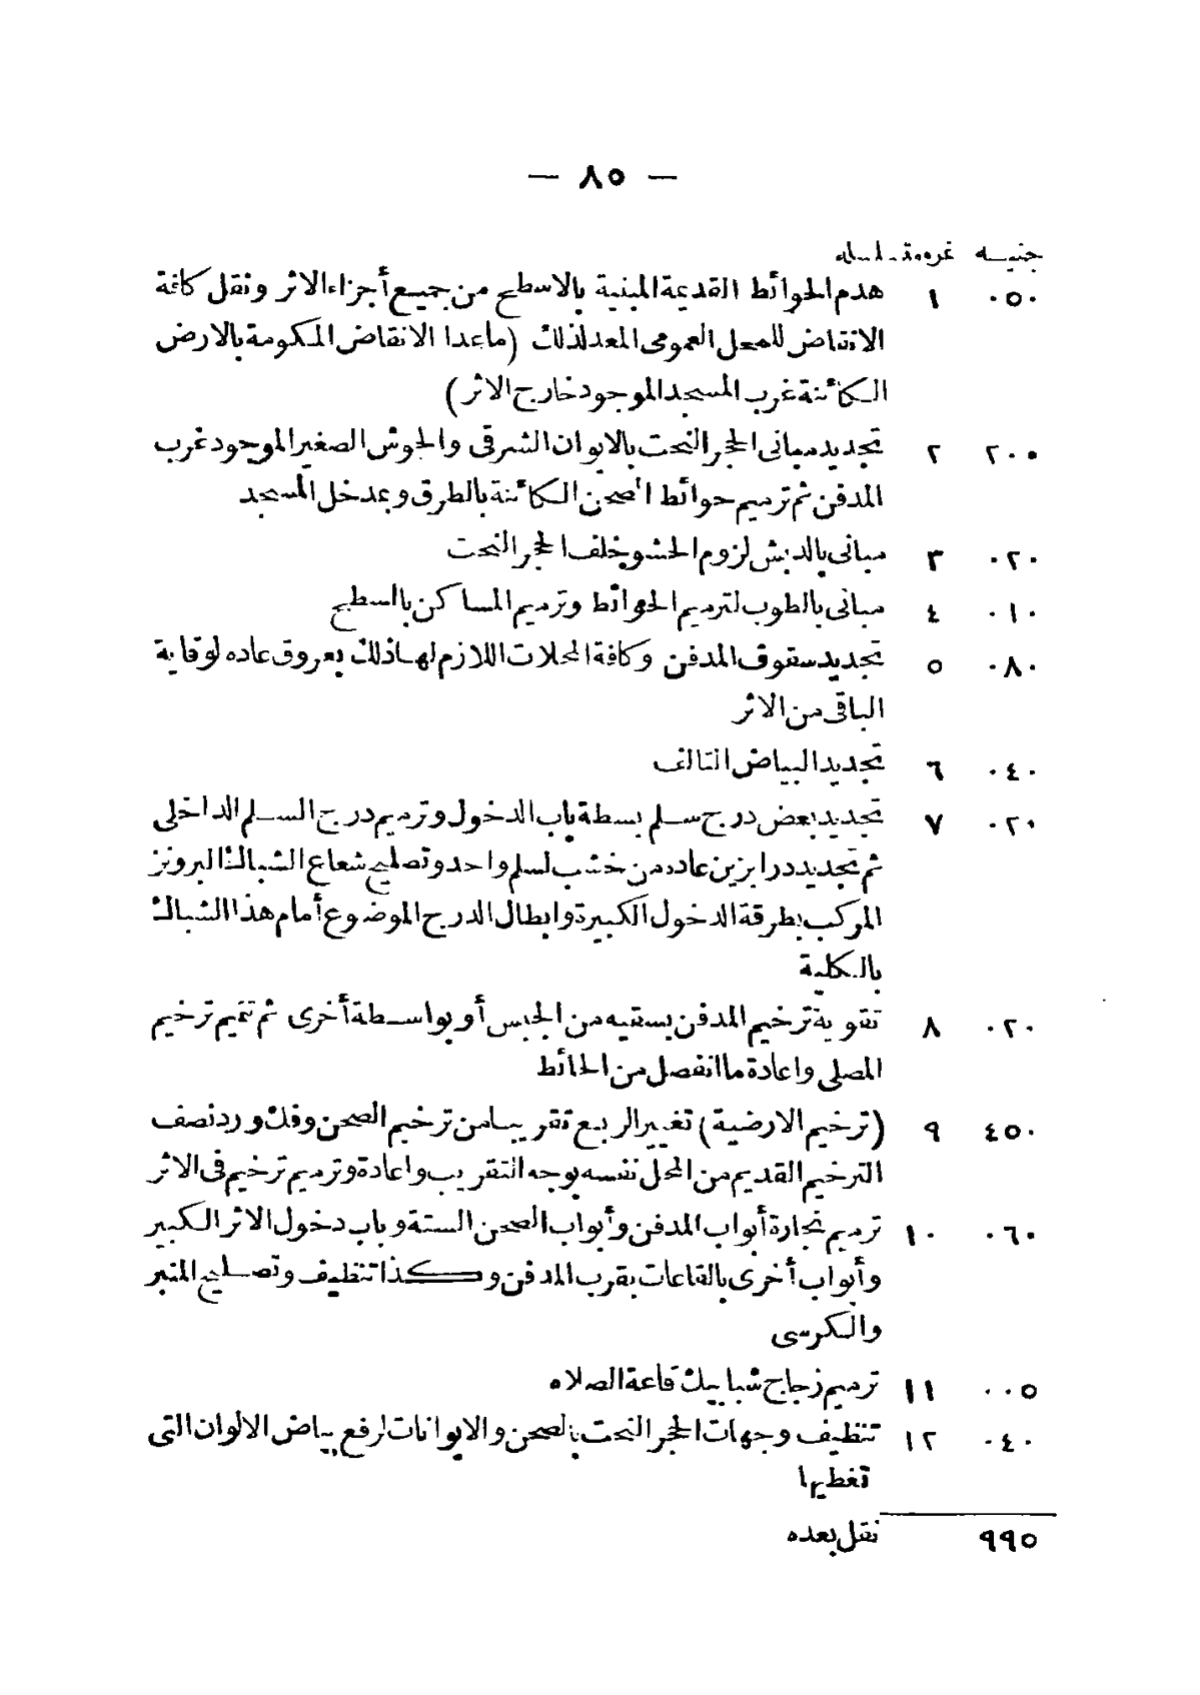 — ٨٥ —
جنيـه نمرة متسلسله
٠٥٠ ١ هدم الحوائط القديمة المبنية بالاسطح من جميع أجزاء الاثر ونقل كافة
الانقاض للمحل العمومى المعد لذلك (ماعدا الانقاض المكومة بالارض
الكائنة غرب المسجد الموجود خارج الاثر)
٢٠٠ ٢ تجديد مبانى الحجر النحت بالايوان الشرقى والحوش الصغير الموجود غرب
المدفن ثم ترميم حوائط الصحن الكائنة بالطرق وبمدخل المسجد
٠٢٠ ٣ مبانى بالدبش لزوم الحشو خلف الحجر النحت
٠١٠ ٤ مبانى بالطوب لترميم الحوائط وترميم المساكن بالسطح
٠٨٠ ٥ تجديد سقوف المدفن وكافة المحلات اللازم لها ذلك بعروق عاده لوقاية
الباقى من الاثر
٠٤٠ ٦ تجديد البياض التالف
٠٢٠ ٧ تجديد بعض درج سلم بسطة باب الدخول وترميم درج السلم الداخلى
ثم تجديد درابزين عاده من خشب لسلم واحد وتصليح شعاع الشباك البرونز
المركب بطرقة الدخول الكبيرة وابطال الدرج الموضوع أمام هذا الشباك
بالكلية
٠٢٠ ٨ تقوية ترخيم المدفن بسقيه من الجبس أو بواسطة أخرى ثم تتميم ترخيم
المصلى واعادة ما انفصل من الحائط
٤٥٠ ٩ (ترخيم الارضية) تغيير الربع تقريبا من ترخيم الصحن وفك ورد نصف
الترخيم القديم من المحل نفسه بوجه التقريب واعادة وترميم ترخيم فى الاثر
٠٦٠ ١٠ ترميم نجارة أبواب المدفن وأبواب الصحن الستة وباب دخول الاثر الكبير
وأبواب أخرى بالقاعات بقرب المدفن وكذا تنظيف وتصليح المنبر
والكرسى
٠٠٥ ١١ ترميم زجاج شبابيك قاعة الصلاه
٠٤٠ ١٢ تنظيف وجهات الحجر النحت بالصحن والايوانات لرفع بياض الالوان التى
تغطيها
٩٩٥ نقل بعده